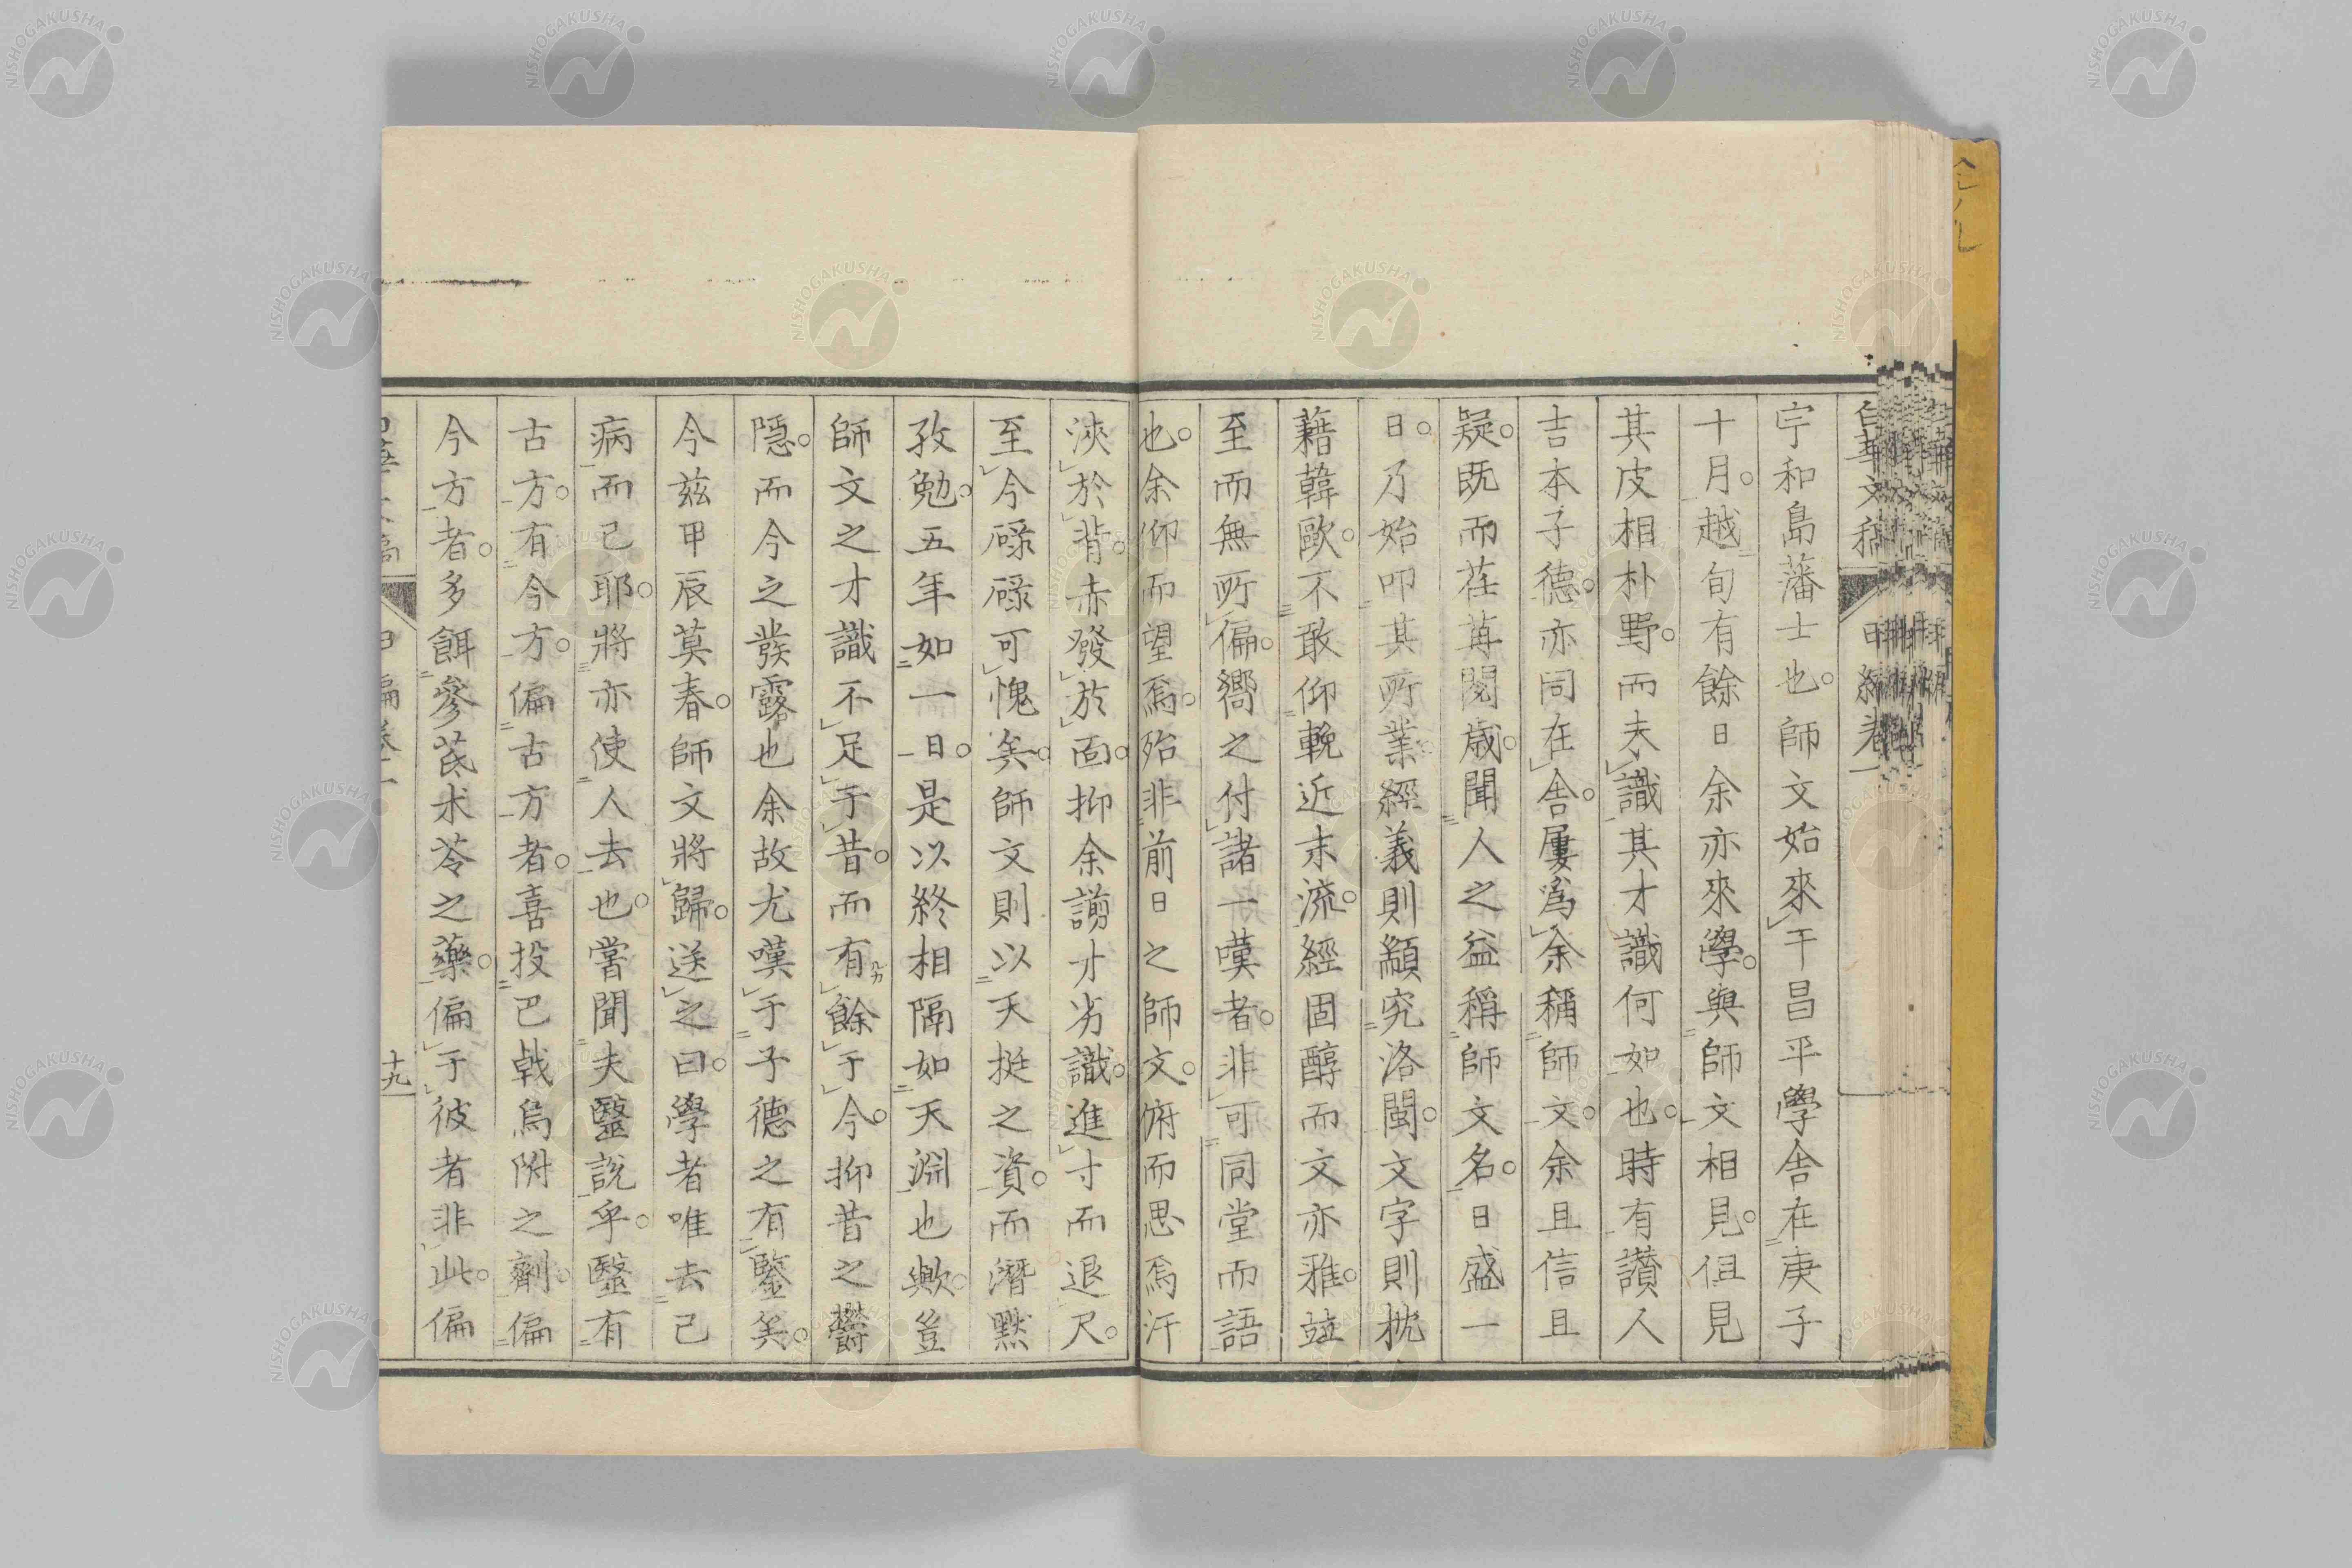 宇和島藩士也。師文始來于昌平學舎在庚子
十月。越旬有餘日余亦來學。與師文相見。但見
其皮相朴野。而未識其才識何如也。時有讃人
吉本子德。亦同在舎。屢爲余稱師文。余且信且
疑。既而荏苒閲歳。聞人之益稱師文名。日盛一
日。乃始叩其所業。經義則顓究洛閩。文字則枕
藉韓歐。不敢仰輓近末流。經固醇而文亦雅。竝
至而無所偏。嚮之付諸一嘆者。非可同堂而語
也。余仰而望焉。殆非前日之師文。俯而思焉汗
浹於背。赤發於面。抑余謭才劣識。進寸而退尺。
至今碌碌可愧矣。師文則以天挺之資。而潛默
孜勉。五年如一日。是以終相隔如天淵也歟。豈
師文之才識不足于昔。而有餘于今。抑昔之欝
隱。而今之發露也余故尤嘆于子德之有鑒矣。
今茲甲辰莫春。師文將歸。送之曰。學者唯去己
病而已耶。將亦使人去也。嘗聞夫醫說乎。醫有
古方。有今方。偏古方者。喜投巴戟烏附之劑。偏
今方者。多餌參茋朮苓之藥。偏于彼者非此。偏
十九